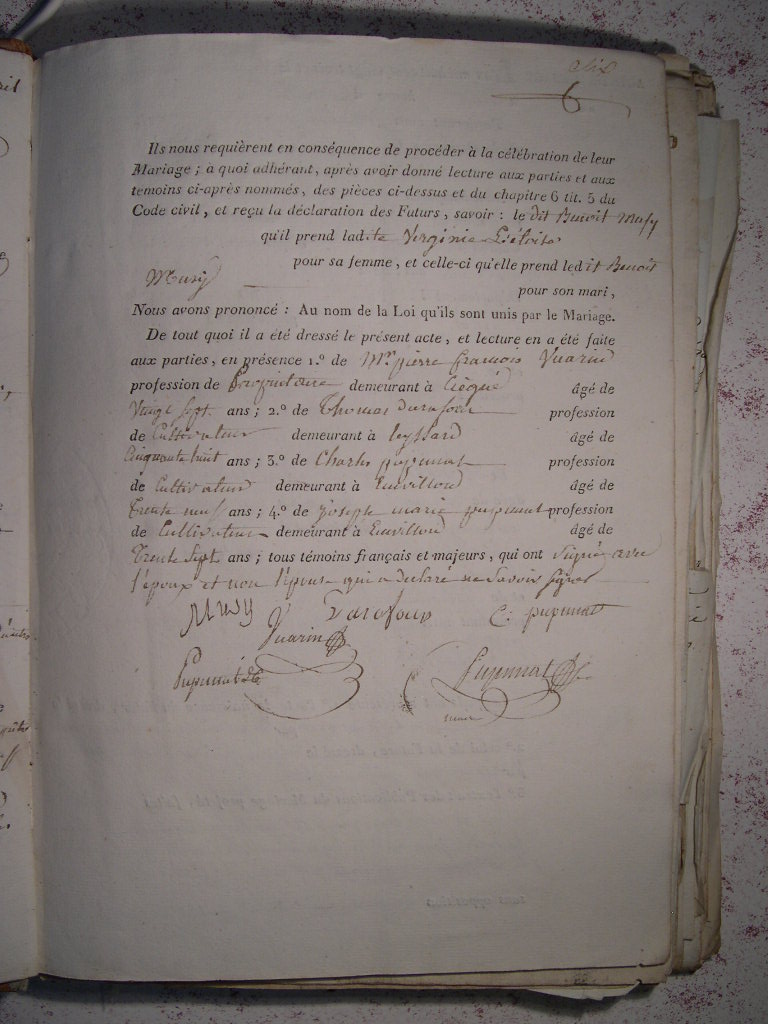 6
Ils nous requièrent en conséquence de procéder à la célébration de leur
Mariage ; à quoi adhérant, après avoir donné lecture aux parties et aux
temoins ci-après nommés, des pièces ci-dessus et du chapitre 6 tit. 5 du
Code civil, et reçu la déclaration des Futurs, savoir : le dit Benoit Musy
qu'il prend ladite Virginie
pour sa femme, et celle-ci qu'elle prend ledit Benoit
Musy pour son mari,
Nous avons prononcé : Au nom de la Loi qu'ils sont unis par le Mariage.
De tout quoi il a été dressé le présent acte, et lecture en a été faite
aux parties, en présence 1.º de Mr. pierre francois Vuarin
profession de Propriétaire demeurant à âgé de
Vingt sept ans ; 2.º de Thomas profession
de Cultivateur demeurant à leyssard âgé de
Cinquante huit ans ; 3.º de Charles pupunat profession
de Cultivateur demeurant à âgé de
Trente neuf ans ; 4.º de joseph marie pupunat profession
de Cultivateur demeurant à âgé de
Trente Sept ans ; tous témoins français et majeurs, qui ont signé avec
l'époux et non l'épouse qui a déclaré ne savoir signer
Musy C. pupunat
Vuarin
Pupunat
Pupunat